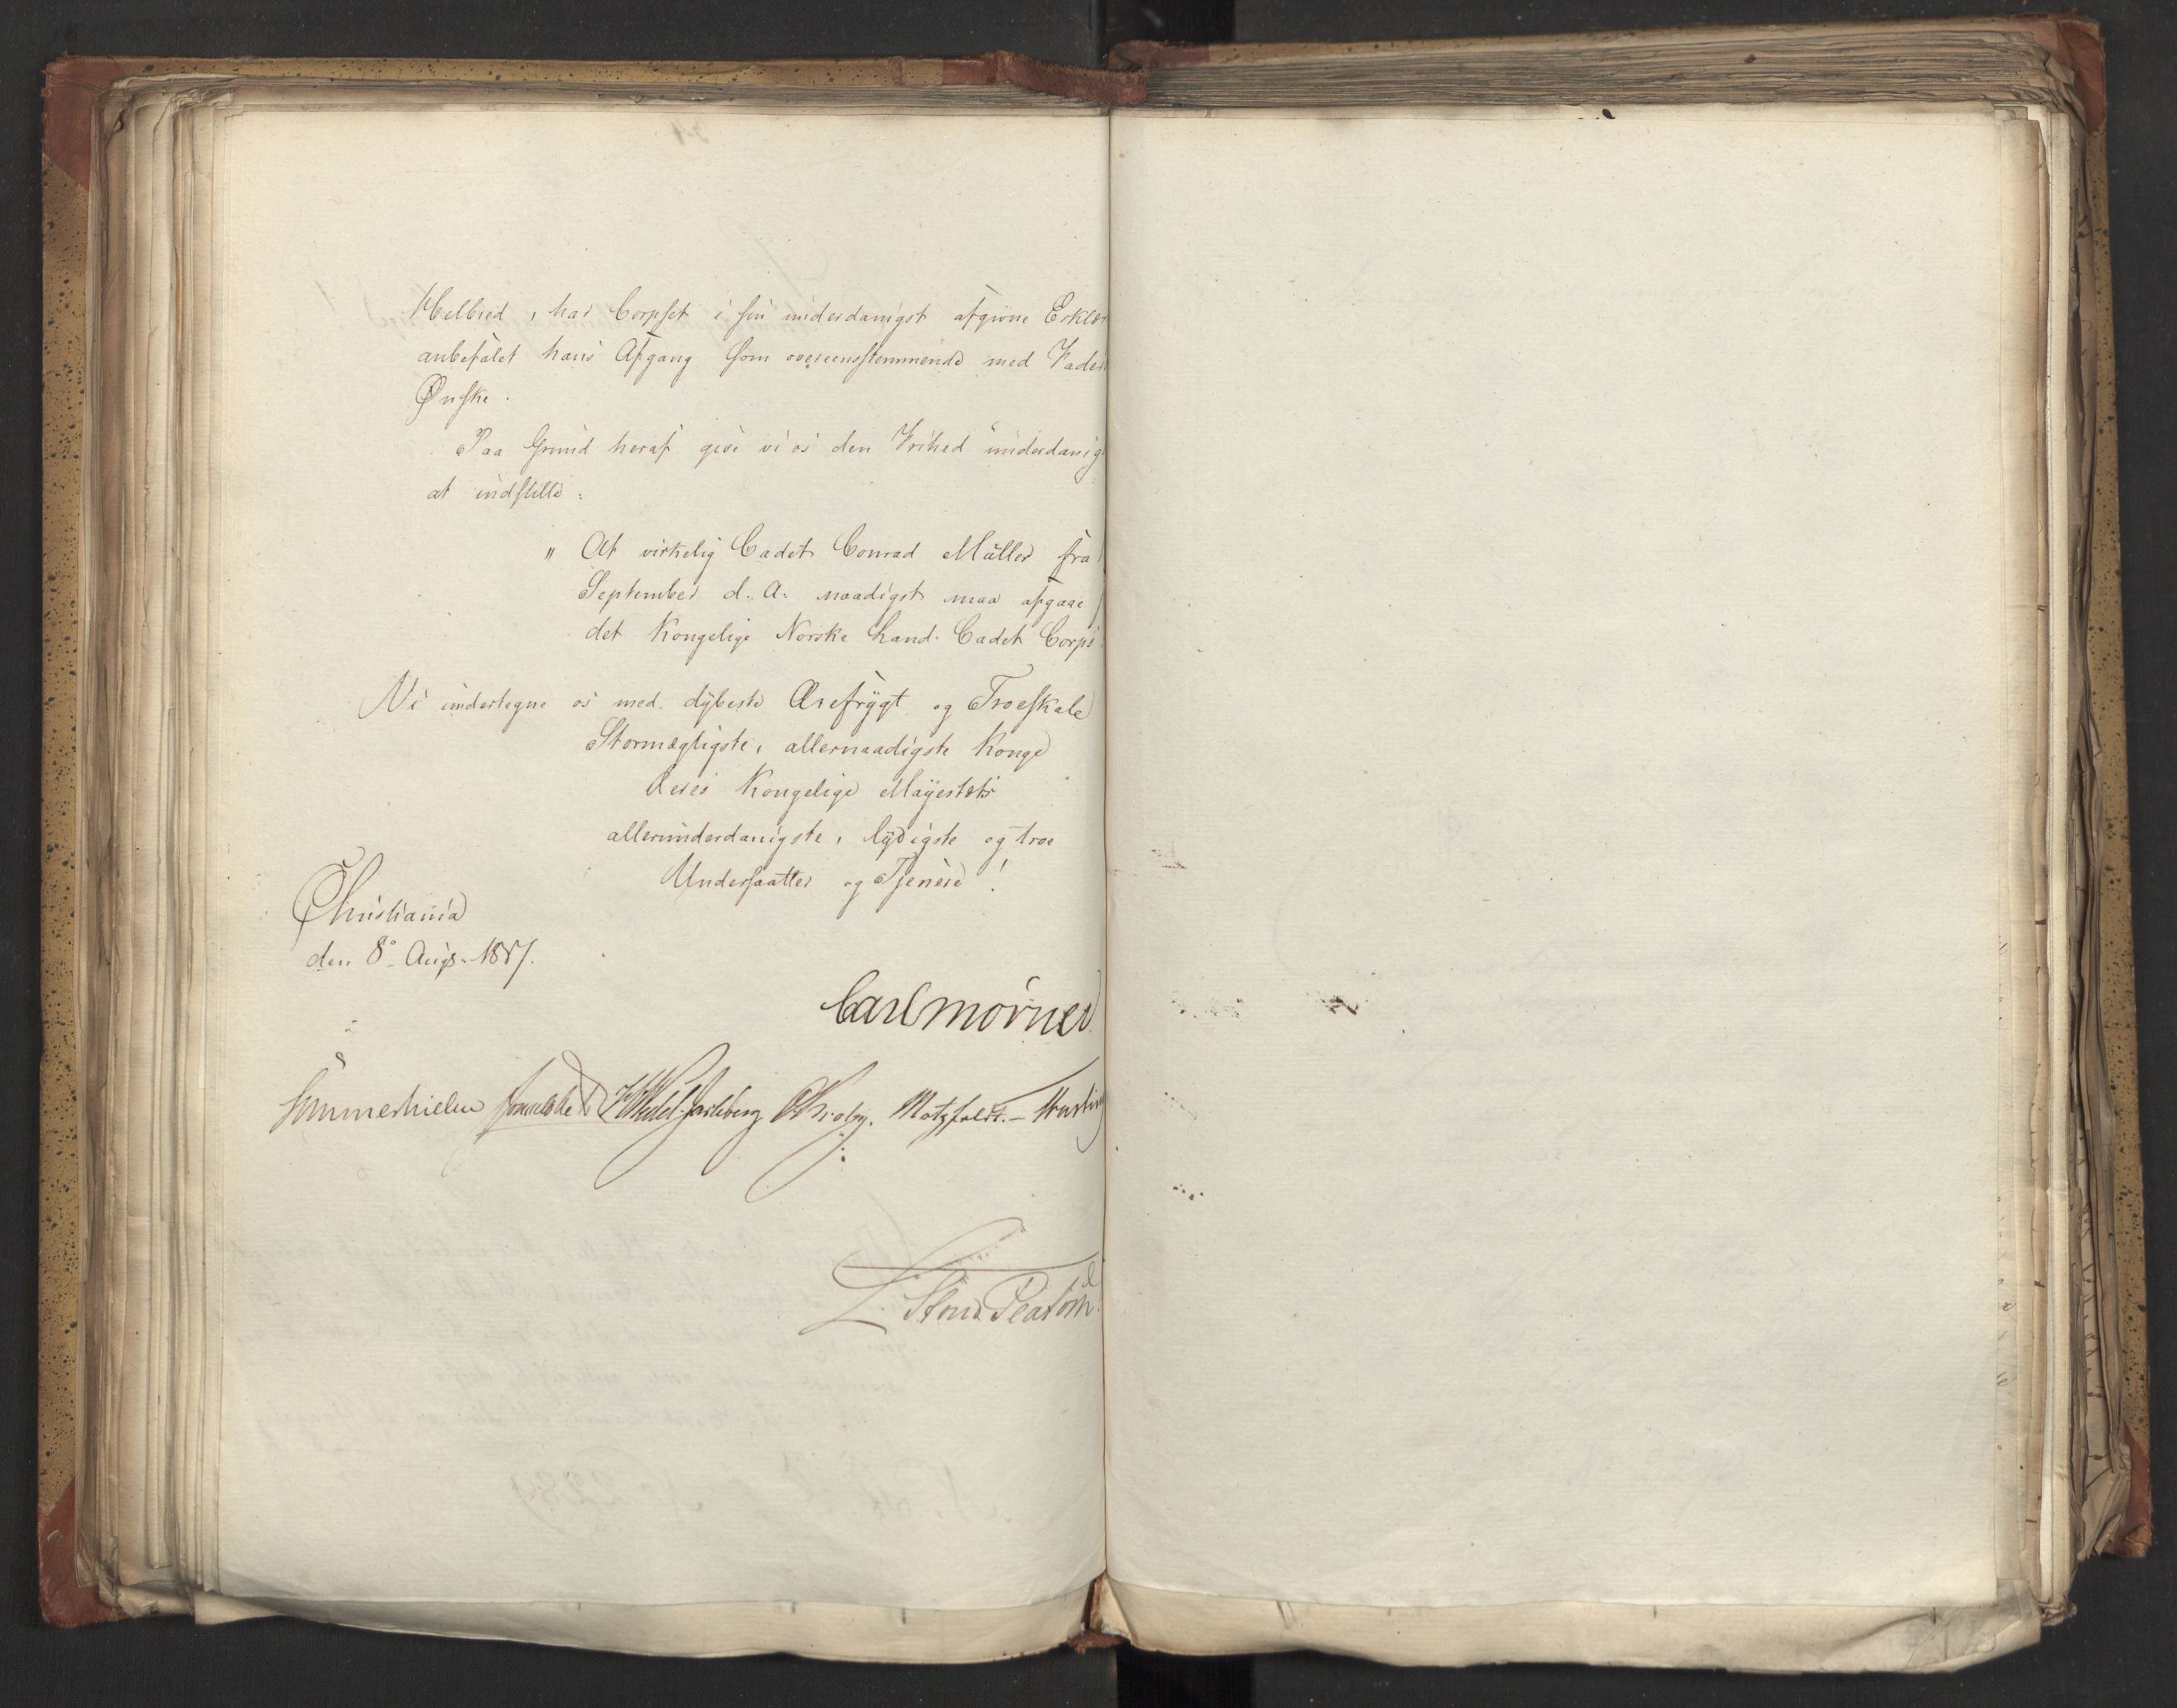 Helbred, har Corpset i sin underdanigst afgivne Erklær
anbefalet hans Afgang som overeensstemmende med Faders
Ønske.
Paa Grund heraf give vi os den Frihed underdanig
at indstille:
" At virkelig Cadet Conrad Müller fra
September d. A. naadigst maa afgaae
det Kongelige Norske Land-Cadet Corps
Vi undertegne os med dÿbeste Ærefrÿgt og Troeskab
Stormægtigste, allernaadigste Konge
Deres Kongelige Mayestæts
allerunderdanigste, lÿdigste og troe
Undersaatter og Tjenere!
Christiania
den 8º Aug. 1817.
Carl Mörner
Sommerhielm HWedel Jarlsberg CKrohg. Motzfeldt.
L. Stoud Platou